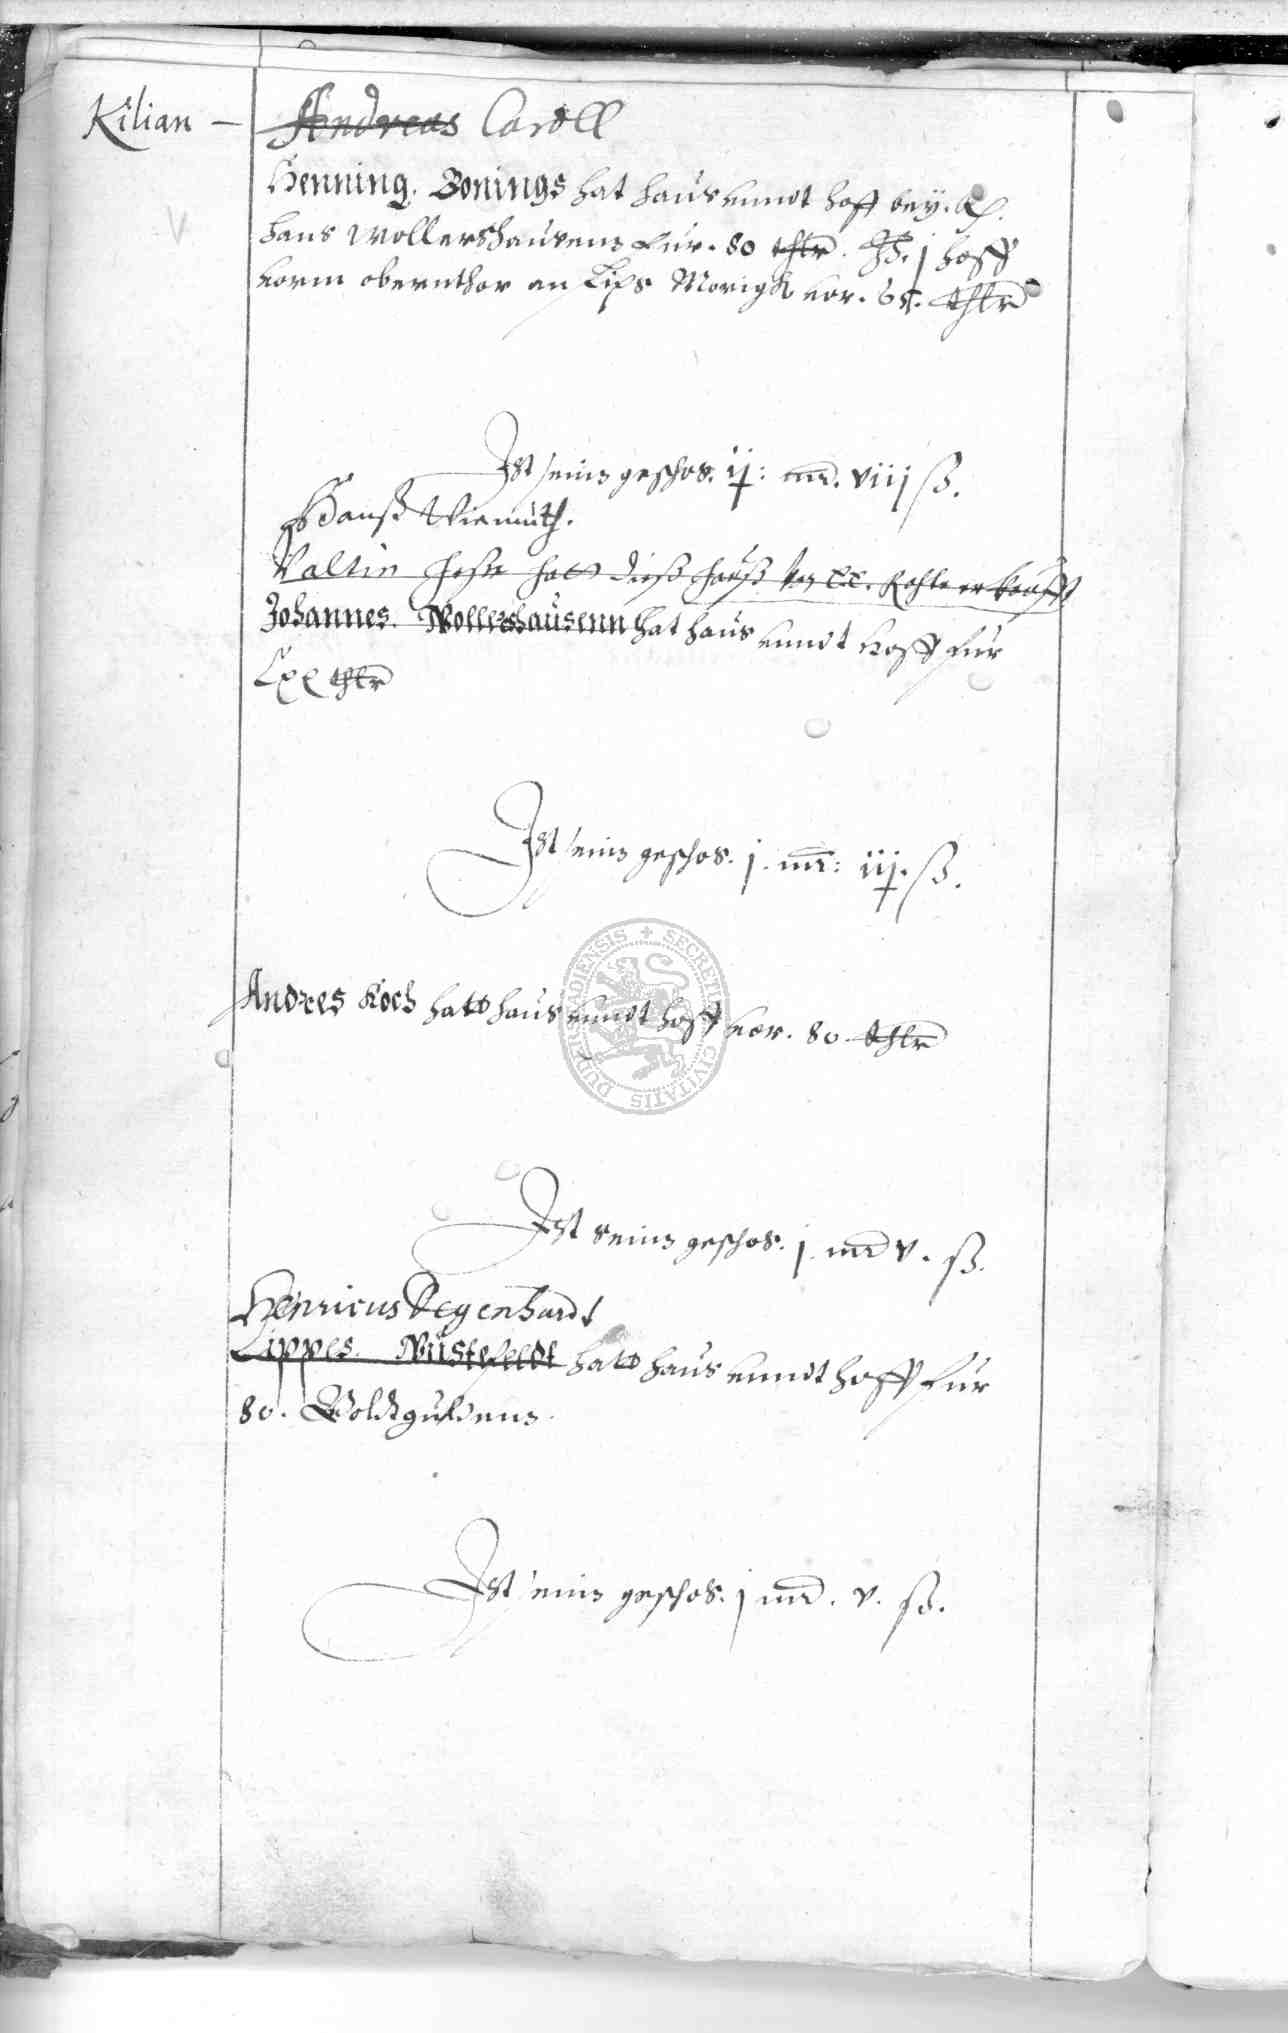 Kilian – Andreas Caroll
Henning. Bonings hat haus unndt hoff bey.
hans Wollershausenn fur. 80 thlr. It. j hoff
vorm obernthor an Lips Morigk vor. 65. thlr
Ist seinn geschos. ij: mr. viij ß.
Hanß Wiemuth.
Valtin hatt dieß hauß erkaufft
Johannes. Wollershausenn hat haus unndt hoff fur
Lxx thlr
Ist seinn geschos. j. mr: iij. ß.
Andres Koch hatt haus unndt hoff vor. 80 thlr
Ist seinn geschos. j. mr v. ß.
Henricus Degenhardt
Lippes. Wustefeldt hatt haus unndt hoff fur
80. Goldtguldenn.
Ist seinn geschos. j mr. v. ß.
SECRETUM CIVITATIS DUDERSTADIENSIS